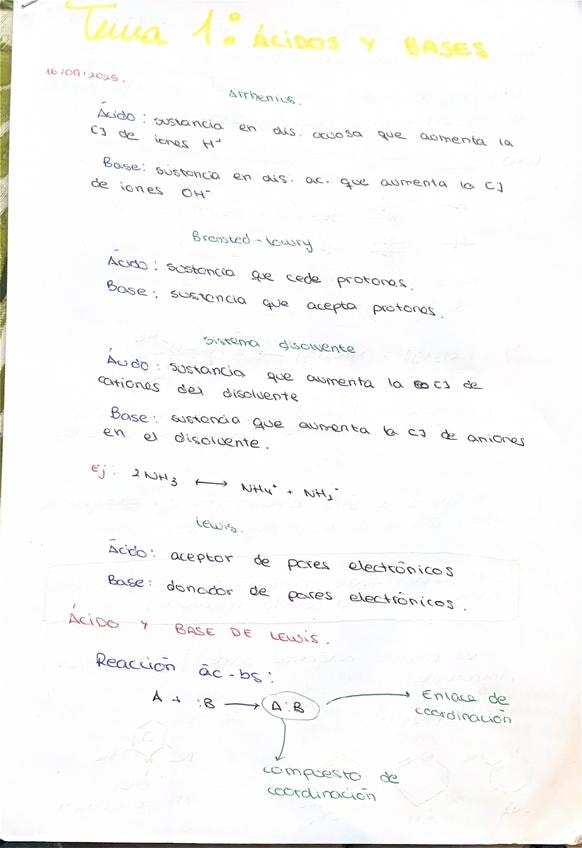 Tema 1: ÁCIDOS Y BASES
16/09/2025.
Arrhenius.
Ácido: sustancia en dis. acuosa que aumenta la
[] de iones H⁺
Base: sustancia en dis. ac. que aumenta la []
de iones OH⁻
Bronsted-Lowry
Ácido: sustancia que cede protones.
Base: sustancia que acepta protones.
Sistema disolvente
Ácido: sustancia que aumenta la [] de
cationes del disolvente
Base: sustancia que aumenta la [] de aniones
en el disolvente.
Ej: 2NH₃ ⟷ NH₄⁺ + NH₂⁻
Lewis.
Ácido: aceptor de pares electrónicos
Base: donador de pares electrónicos.
ÁCIDO Y BASE DE LEWIS.
Reacción ác-bs:
A + :B ⟶ A:B ⟶ Enlace de
coordinación
compuesto de
coordinación